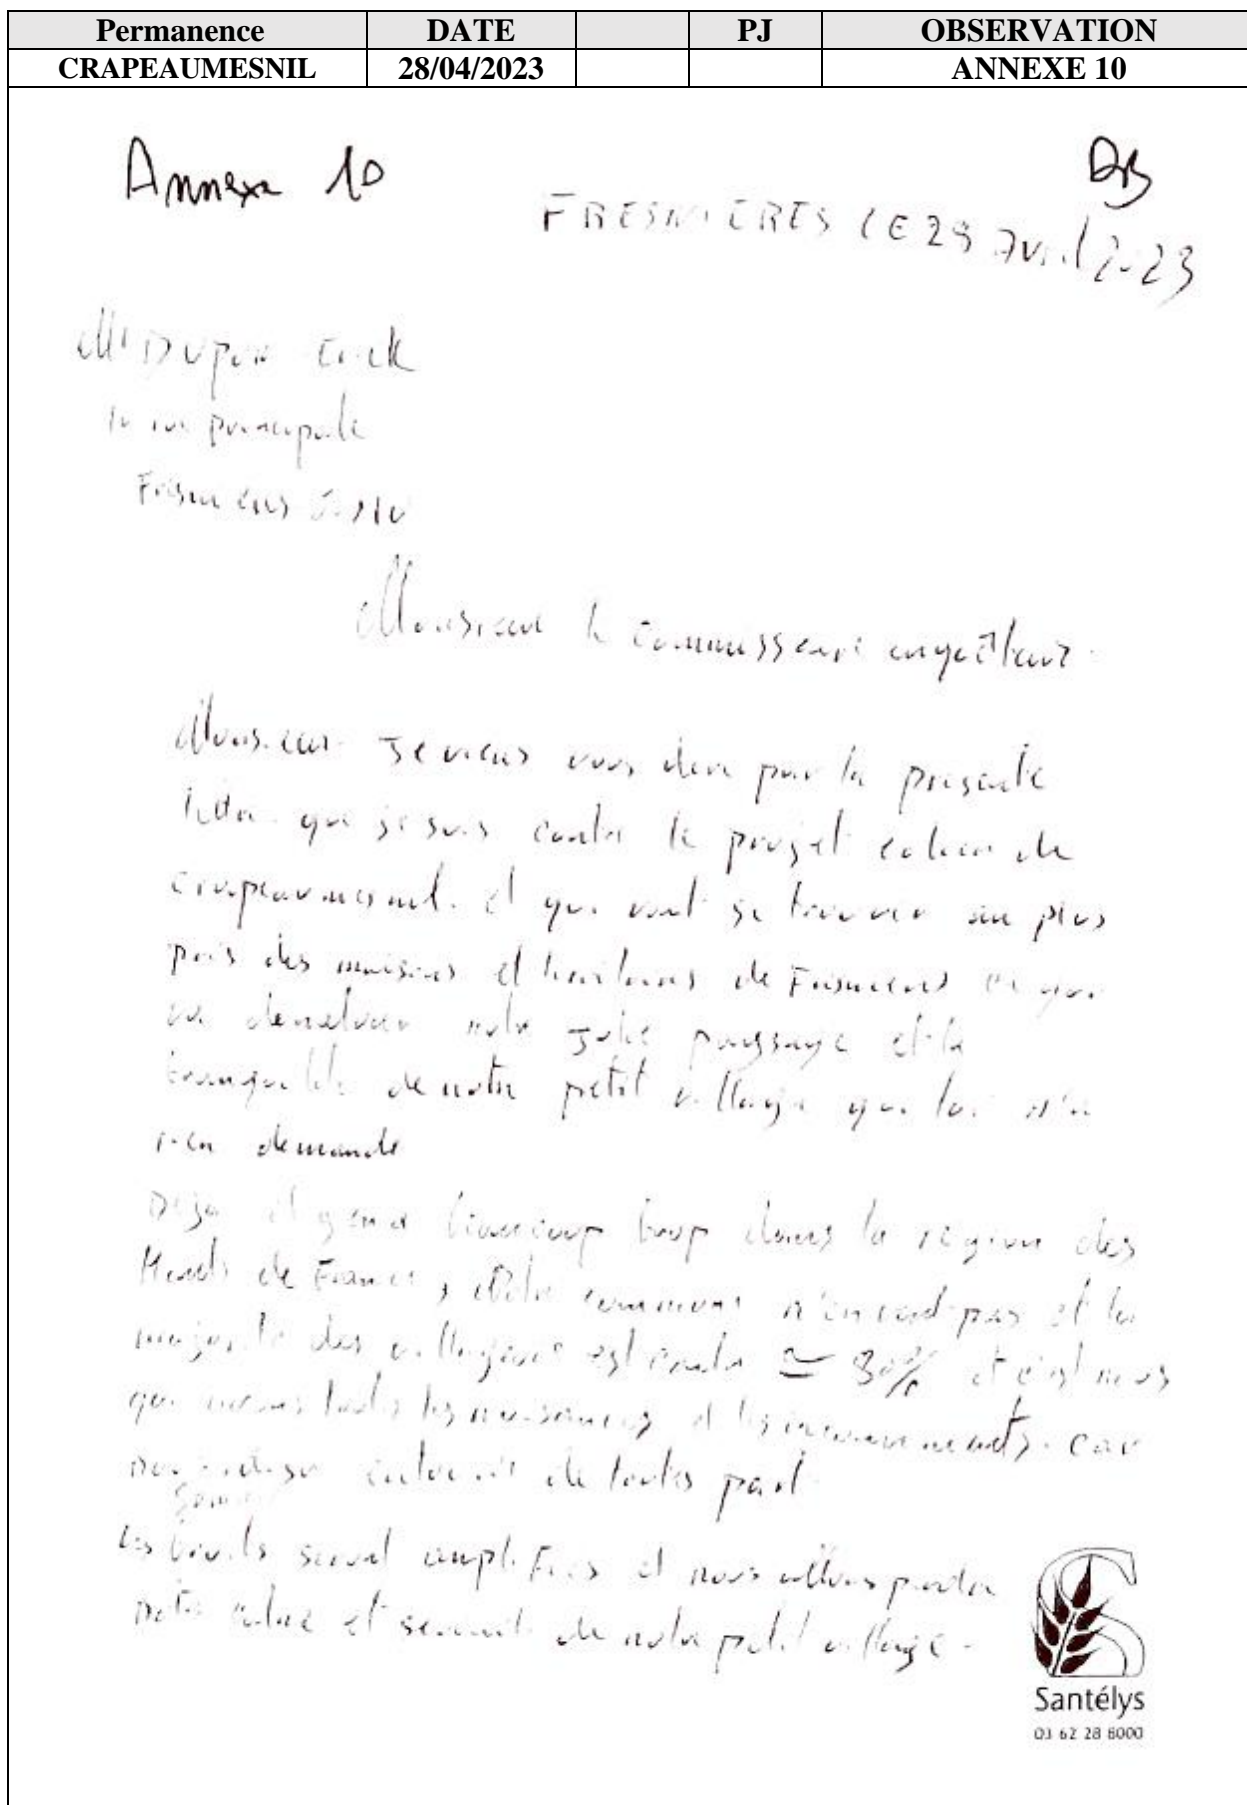 Permanence DATE PJ OBSERVATION
CRAPEAUMESNIL 28/04/2023 ANNEXE 10
Annexe 10
FRESNIERES LE 28 Avril 2023
Mr Dupon
rue principale
Monsieur le commissaire enquêteur
Monsieur je viens vous dire par la presente
lettre que je suis contre le projet eolien de
crapeaumesnil. et qui vont se trouver au plus
pres des maisons et de
notre jolie paysage et la
de notre petit village qui lui n'a
rien demande
Deja il y en a beaucoup trop dans la region des
Hauts de France, Notre commune n'en veut pas et la
majorite des est contre ≃ 80% et c'est nous
qui toutes les nuisances et les car
de toutes part
Les bruits seront amplifies et nous allons perdre
notre calme et de notre petit village.
Santélys
03 62 28 8000